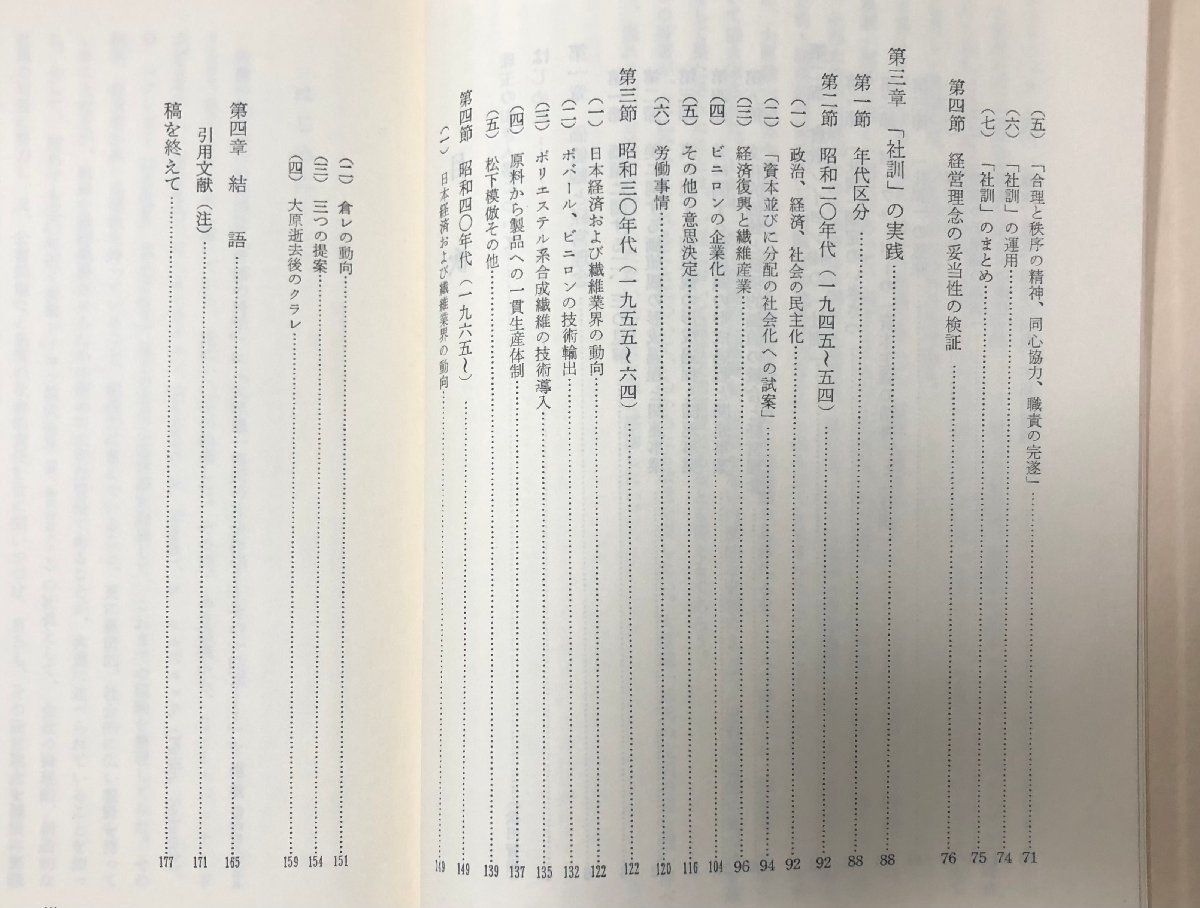 （五）「合理と秩序の精神、同心協力、職責の完遂」……71
（六）「社訓」の運用……74
（七）「社訓」のまとめ……75
第四節 経営理念の妥当性の検証……76
第三章 「社訓」の実践……88
第一節 年代区分……88
第二節 昭和二〇年代（一九四五〜五四）……92
（一）政治、経済、社会の民主化……92
（二）「資本並びに分配の社会化への試案」……94
（三）経済復興と繊維産業……96
（四）ビニロンの企業化……104
（五）その他の意思決定……116
（六）労働事情……120
第三節 昭和三〇年代（一九五五〜六四）……122
（一）日本経済および繊維業界の動向……122
（二）ポバール、ビニロンの技術輸出……132
（三）ポリエステル系合成繊維の技術導入……135
（四）原料から製品への一貫生産体制……137
（五）松下模倣その他……139
第四節 昭和四〇年代（一九六五〜）……149
（一）日本経済および繊維業界の動向……149
（二）倉レの動向……151
（三）三つの提案……154
（四）大原逝去後のクラレ……159
第四章 結語……165
引用文献（注）……171
稿を終えて……177